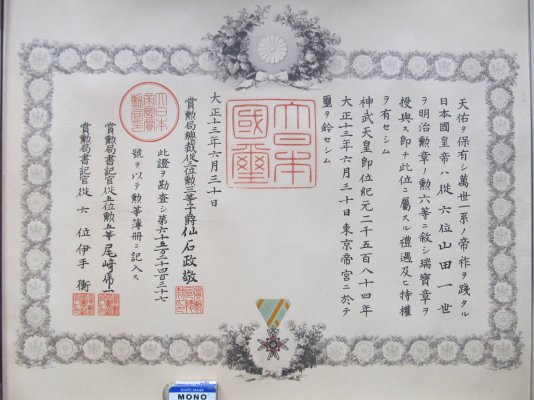 天佑ヲ保有シ萬世一系ノ帝祚ヲ踐タル
日本國皇帝ハ從六位山田一世
ヲ明治勲章ノ勲六等ニ敘シ瑞寶章ヲ
授與ス即チ此位ニ屬スル禮遇及ヒ特權
ヲ有セシム
神武天皇即位紀元二千五百八十四年
大正十三年六月三十日東京帝宮ニ於テ
璽ヲ鈐セシム
大日本國璽
大正十三年六月三十日
賞勲局總裁從三位勲三等子爵仙石政敬
大日本帝國賞勲局印
此證ヲ勘査シ第六十五万三千四百三十七
號ヲ以テ勲等簿册ニ記入ス
賞勲局書記官從五位勲五等
賞勲局書記官從六位伊手衡
PLASTIC ERASER
MONO